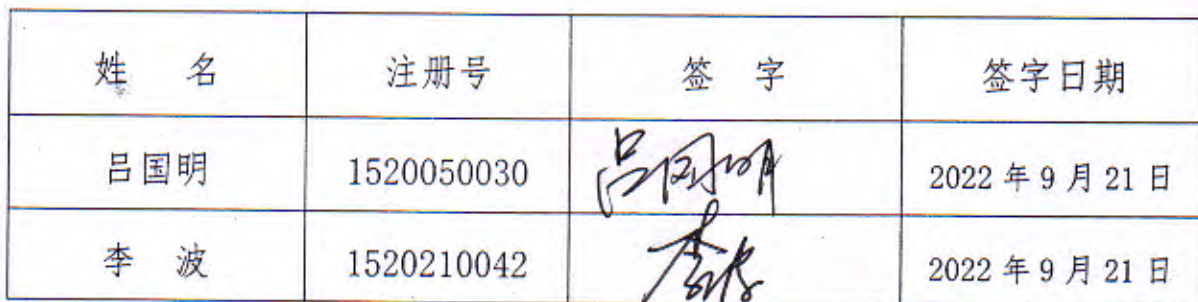 姓 名 注册号 签 字 签字日期
吕国明 1520050030 吕国明 2022 年 9 月 21 日
李 波 1520210042 李波 2022 年 9 月 21 日